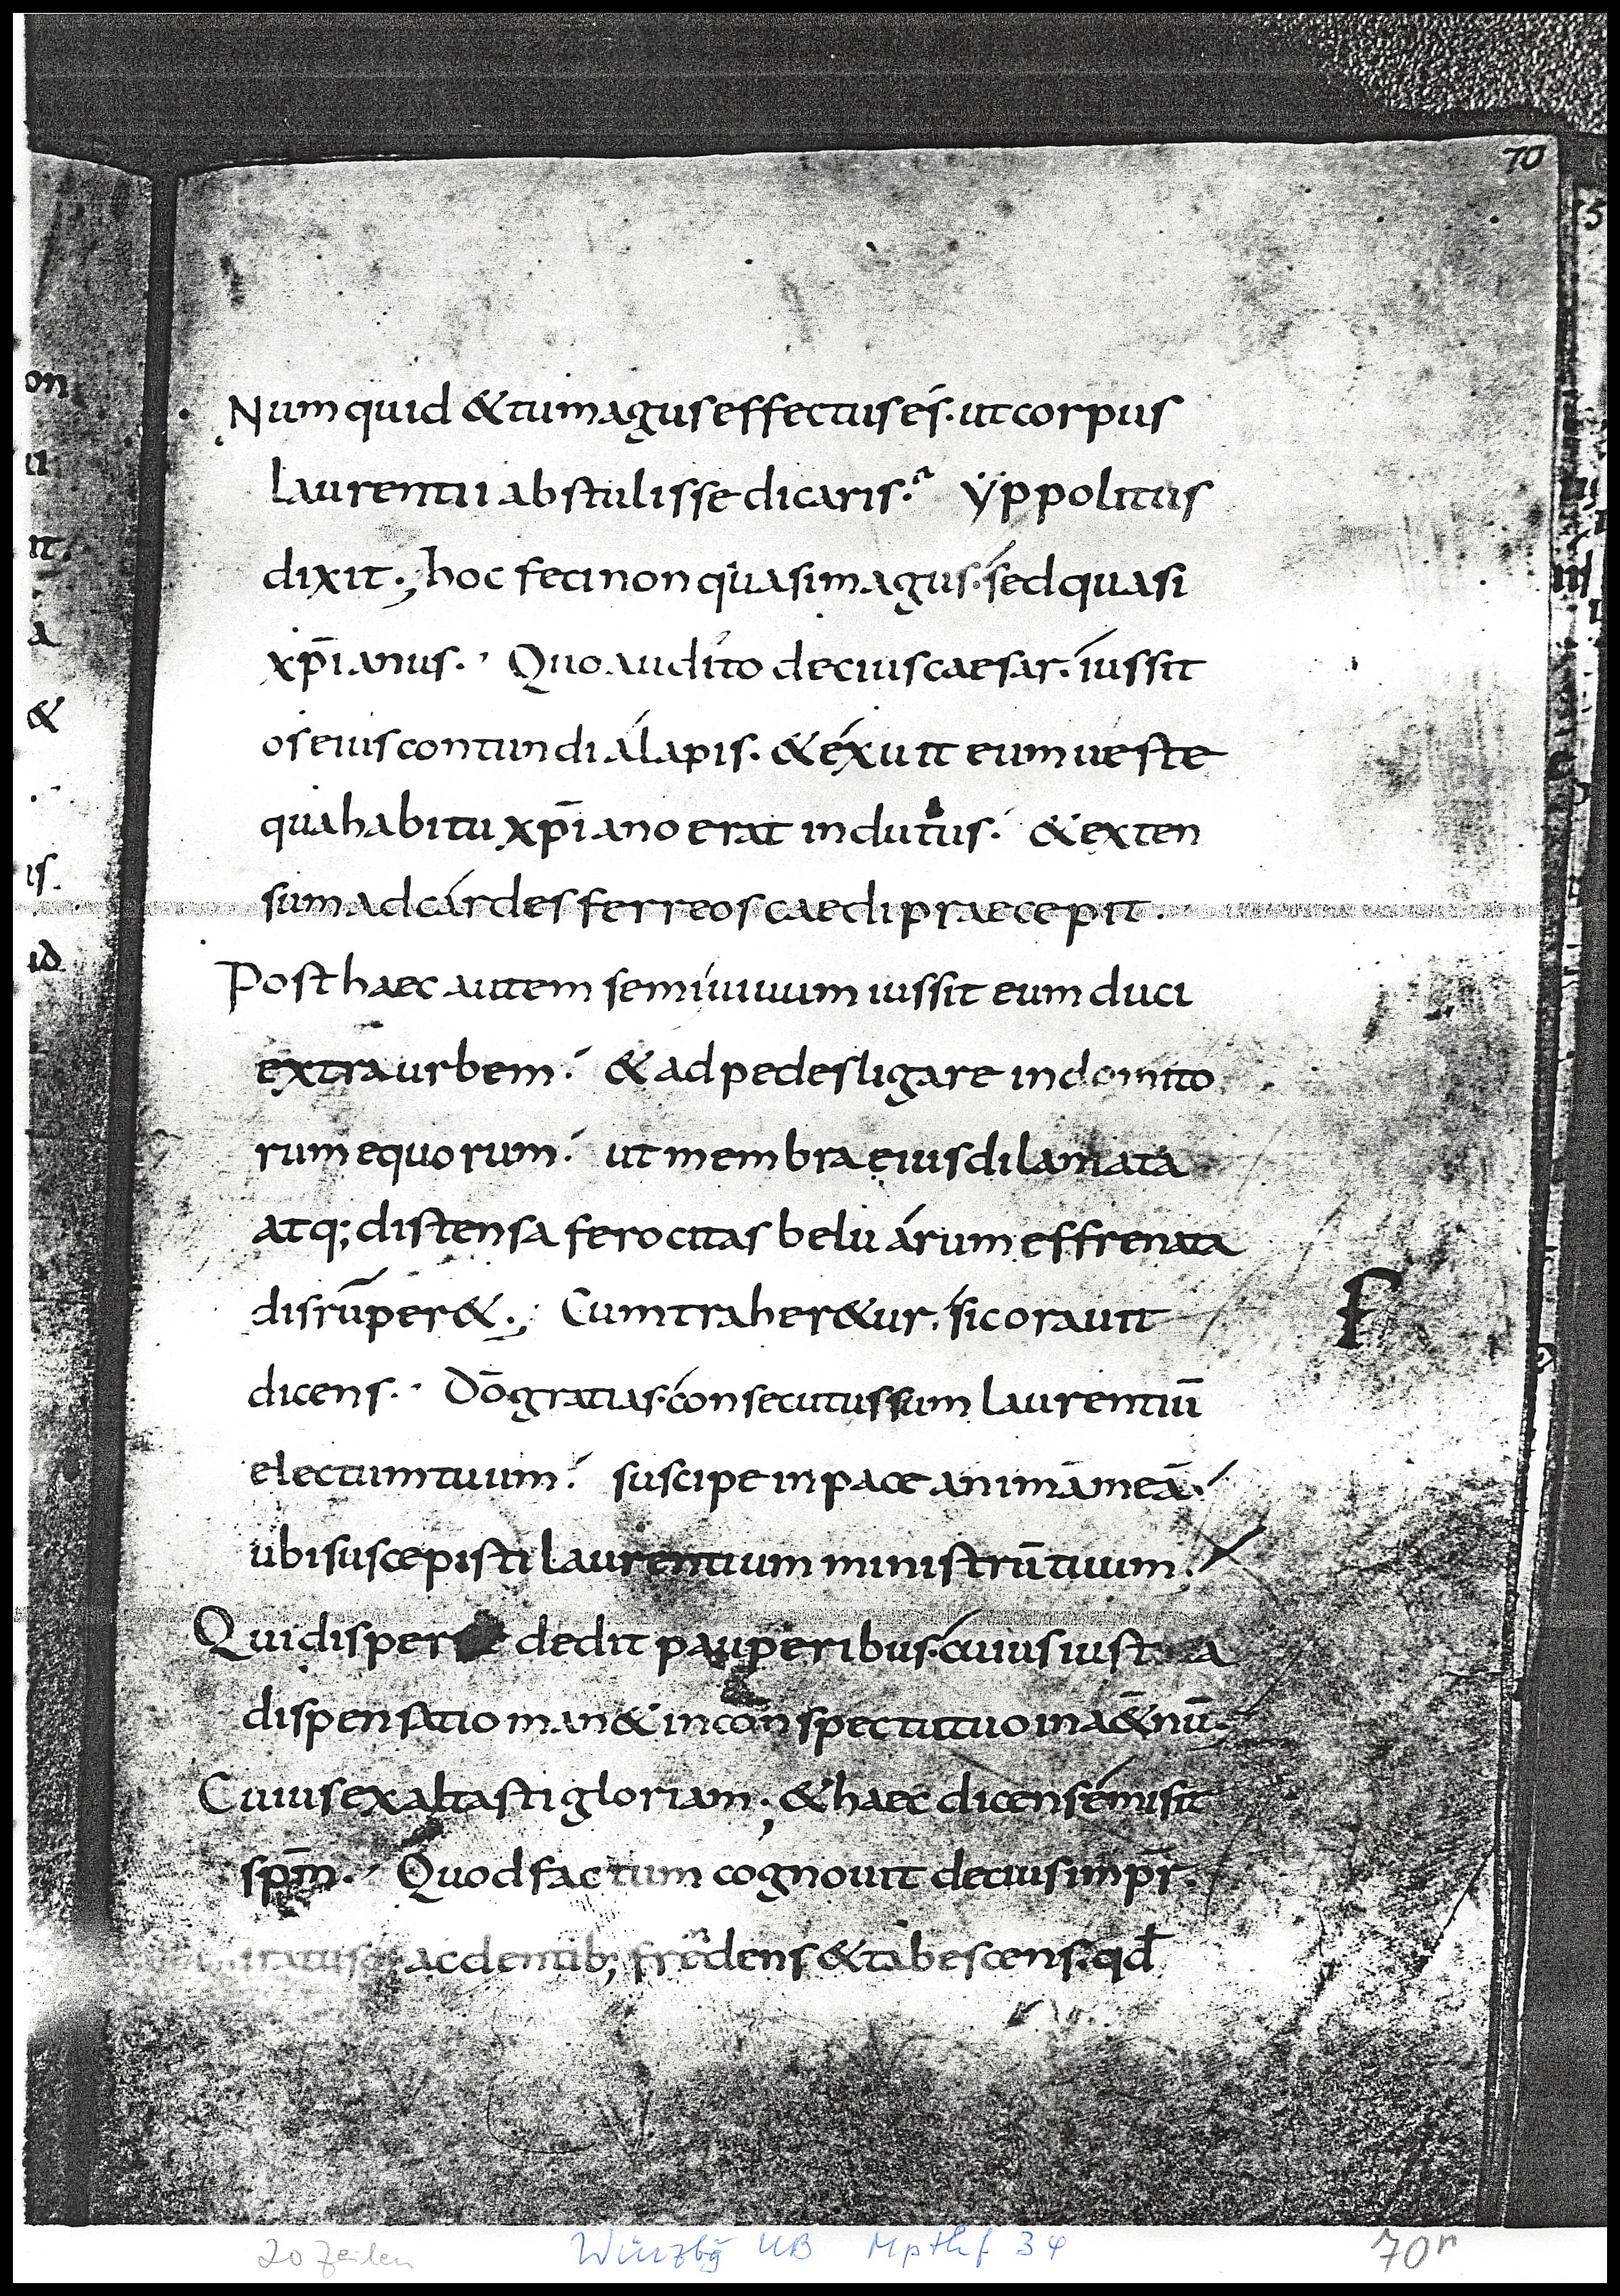 70
Numquid & tu magus effectus es. ut corpus
laurentii abstulisse dicaris. ẏppolitus
dixit., hoc feci non quasi magus. sed quasi
xp̄ianus. Quo audito decius caesar. iussit
os eius contundi alapis. & exuit eum ueste
qua habitu xp̄iano erat indutus. & exten
sum ad cardes ferreos caedi praecepit.
Post haec autem semiuiuum iussit eum duci
extra urbem. & ad pedes ligare indomito
rum equorum. ut membra eius dilaniata
atq; distensa ferocitas beluarum effrenata
disrūper&., Cum traher&ur. sic orauit
F
dicens. Dō gratias. consecutus sum laurentiū
electum tuum. suscipe in pace animā meā.
ubi suscepisti laurentium ministrū tuum.
Qui dedit pauperibus. cuius
dispensatio man& in conspectu tuo in a&nū.
Cuius exaltasti gloriam; & haec dicens emisit
sp̄m. Quod factum cognouit decius imp̄r.
iratus ac dentib; frendens & tabescens. qđ
20 Zeilen Würzbg UB Mpthf 34 70r
on
ii
it.
a
&
is.
id